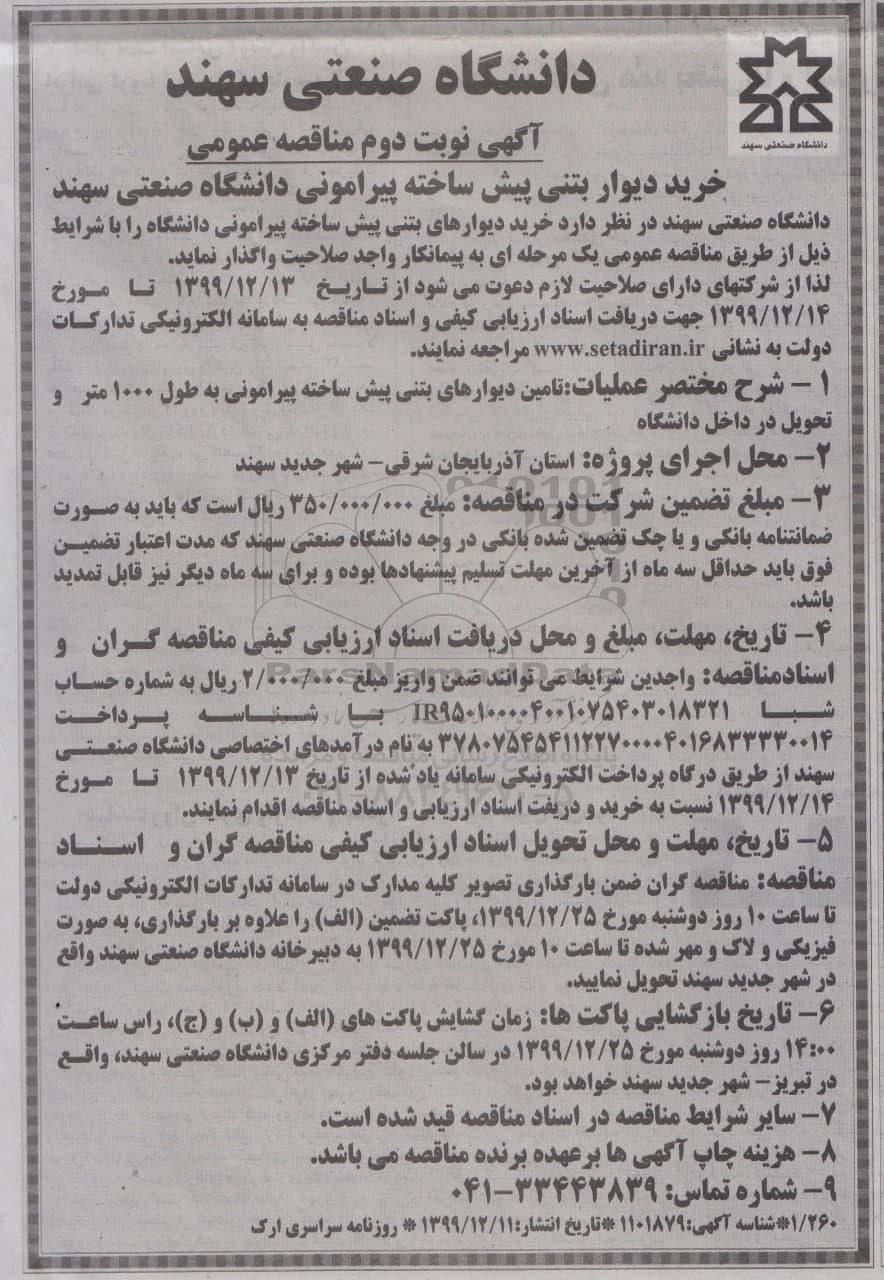 دانشگاه صنعتی سهند
دانشگاه صنعتی سهند
آگهی نوبت دوم مناقصه عمومی
خرید دیوار بتنی پیش ساخته پیرامونی دانشگاه صنعتی سهند
دانشگاه صنعتی سهند در نظر دارد خرید دیوارهای بتنی پیش ساخته پیرامونی دانشگاه را با شرایط
ذیل از طریق مناقصه عمومی یک مرحله ای به پیمانکار واجد صلاحیت واگذار نماید.
لذا از شرکتهای دارای صلاحیت لازم دعوت می شود از تاریخ ۱۳۹۹/۱۲/۱۳ تا مورخ
۱۳۹۹/۱۲/۱۴ جهت دریافت اسناد ارزیابی کیفی و اسناد مناقصه به سامانه الکترونیکی تدارکات
دولت به نشانی www.setadiran.ir مراجعه نمایند.
۱- شرح مختصر عملیات:تامین دیوارهای بتنی پیش ساخته پیرامونی به طول ۱۰۰۰ متر و
تحویل در داخل دانشگاه
۲- محل اجرای پروژه: استان آذربایجان شرقی- شهر جدید سهند
۳- مبلغ تضمین شرکت در مناقصه: مبلغ ۳۵۰/۰۰۰/۰۰۰ ریال است که باید به صورت
ضمانتنامه بانکی و یا چک تضمین شده بانکی در وجه دانشگاه صنعتی سهند که مدت اعتبار تضمین
فوق باید حداقل سه ماه از آخرین مهلت تسلیم پیشنهادها بوده و برای سه ماه دیگر نیز قابل تمدید
باشد.
۴- تاریخ، مهلت، مبلغ و محل دریافت اسناد ارزیابی کیفی مناقصه گران و
اسنادمناقصه: واجدین شرایط می توانند ضمن واریز مبلغ ۲/۰۰۰/۰۰۰ ریال به شماره حساب
شبا IR۹۵۰۱۰۰۰۰۴۰۰۱۰۷۵۴۰۳۰۱۸۳۲۱ با شناسه پرداخت
۳۷۸۰۷۵۴۵۴۱۱۲۲۷۰۰۰۰۴۰۱۶۸۳۳۳۳۰۰۱۴ به نام درآمدهای اختصاصی دانشگاه صنعتی
سهند از طریق درگاه پرداخت الکترونیکی سامانه یاد شده از تاریخ ۱۳۹۹/۱۲/۱۳ تا مورخ
۱۳۹۹/۱۲/۱۴ نسبت به خرید و دریفت اسناد ارزیابی و اسناد مناقصه اقدام نمایند.
۵- تاریخ، مهلت و محل تحویل اسناد ارزیابی کیفی مناقصه گران و اسناد
مناقصه: مناقصه گران ضمن بارگذاری تصویر کلیه مدارک در سامانه تدارکات الکترونیکی دولت
تا ساعت ۱۰ روز دوشنبه مورخ ۱۳۹۹/۱۲/۲۵، پاکت تضمین (الف) را علاوه بر بارگذاری، به صورت
فیزیکی و لاک و مهر شده تا ساعت ۱۰ مورخ ۱۳۹۹/۱۲/۲۵ به دبیرخانه دانشگاه صنعتی سهند واقع
در شهر جدید سهند تحویل نمایید.
۶- تاریخ بازگشایی پاکت ها: زمان گشایش پاکت های (الف) و (ب) و (ج)، راس ساعت
۱۴:۰۰ روز دوشنبه مورخ ۱۳۹۹/۱۲/۲۵ در سالن جلسه دفتر مرکزی دانشگاه صنعتی سهند، واقع
در تبریز- شهر جدید سهند خواهد بود.
۷- سایر شرایط مناقصه در اسناد مناقصه قید شده است.
۸- هزینه چاپ آگهی ها برعهده برنده مناقصه می باشد.
۹- شماره تماس: ۳۳۴۴۳۸۳۹-۰۴۱
۱/۲۶۰*شناسه آگهی:۱۱۰۱۸۷۹ *تاریخ انتشار:۱۳۹۹/۱۲/۱۱ * روزنامه سراسری ارک
ParsNamadData